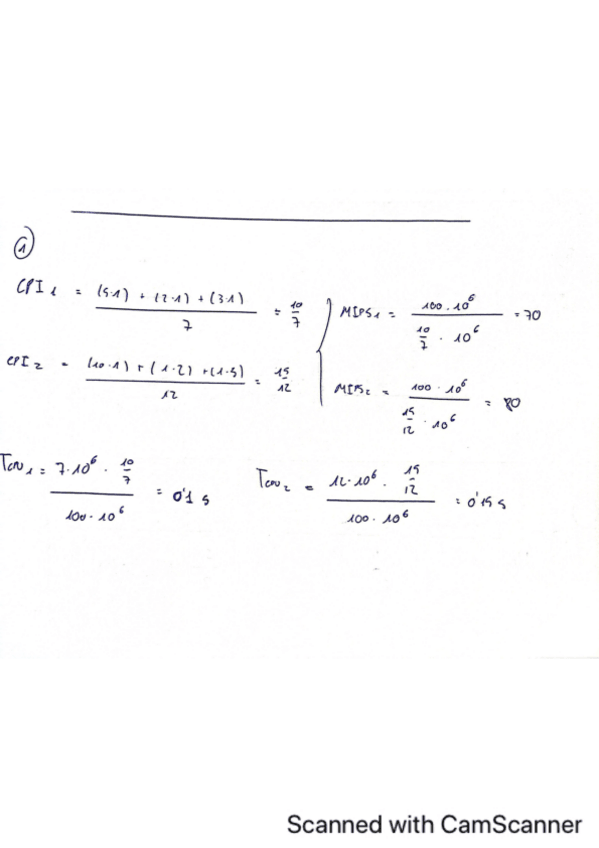 1
CPI1 = (5·1) + (2·1) + (3·1) / 7 = 10/7
MIPS1 = 100·10^6 / (10/7 · 10^6) = 70
CPI2 = (10·1) + (1·2) + (1·3) / 12 = 15/12
MIPS2 = 100·10^6 / (15/12 · 10^6) = 80
TCPU1 = 7·10^6 · 10/7 / 100·10^6 = 0'1 s
TCPU2 = 12·10^6 · 15/12 / 100·10^6 = 0'15 s
Scanned with CamScanner